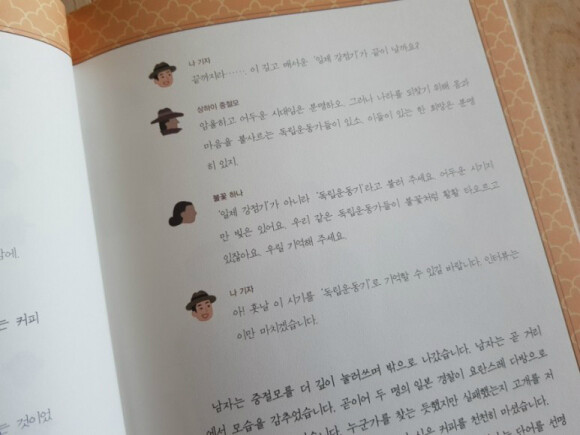 나 기자
끝까지라…… 이 길고 매서운 '일제 강점기'가 끝이 날까요?
상하이 중절모
암울하고 어두운 시대임은 분명하오. 그러나 나라를 되찾기 위해 몸과
마음을 불사르는 독립운동가들이 있소. 이들이 있는 한 희망은 분명
히 있지.
불꽃 하나
'일제 강점기'가 아니라 '독립운동기'라고 불러 주세요. 어두운 시기지
만 빛은 있어요. 우리 같은 독립운동가들이 불꽃처럼 활활 타오르고
있잖아요. 우릴 기억해 주세요.
나 기자
아! 훗날 이 시기를 '독립운동기'로 기억할 수 있길 바랍니다. 인터뷰는
이만 마치겠습니다.
남자는 중절모를 더 깊이 눌러쓰며 밖으로 나갔습니다. 남자는 곧 거리
에서 모습을 감추었습니다. 곧이어 두 명의 일본 경찰이 요란스레 다방으로
누군가를 찾는 듯했지만 실패했는지 고개를 저
커피를 천천히 마셨습니다.
단어를 선명
는 커피
는 것이었